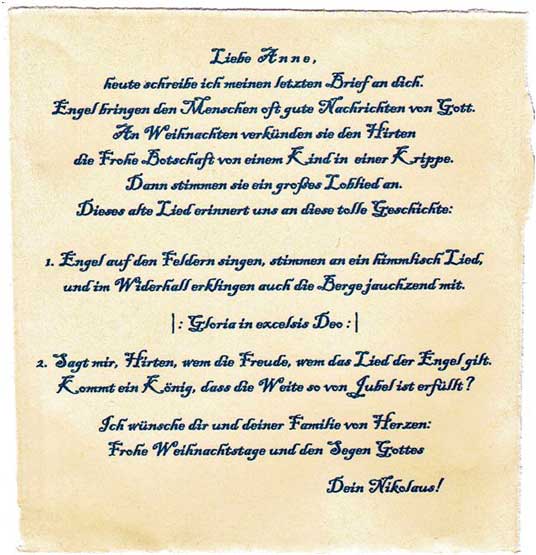 Liebe Anne,
heute schreibe ich meinen letzten Brief an dich.
Engel bringen den Menschen oft gute Nachrichten von Gott.
An Weihnachten verkünden sie den Hirten
die Frohe Botschaft von einem Kind in einer Krippe.
Dann stimmen sie ein großes Loblied an.
Dieses alte Lied erinnert uns an diese tolle Geschichte:
1. Engel auf den Feldern singen, stimmen an ein himmlisch Lied,
und im Widerhall erklingen auch die Berge jauchzend mit.
|: Gloria in excelsis Deo :|
2. Sagt mir, Hirten, wem die Freude, wem das Lied der Engel gilt.
Kommt ein König, dass die Weite so von Jubel ist erfüllt?
Ich wünsche dir und deiner Familie von Herzen:
Frohe Weihnachtstage und den Segen Gottes
Dein Nikolaus!